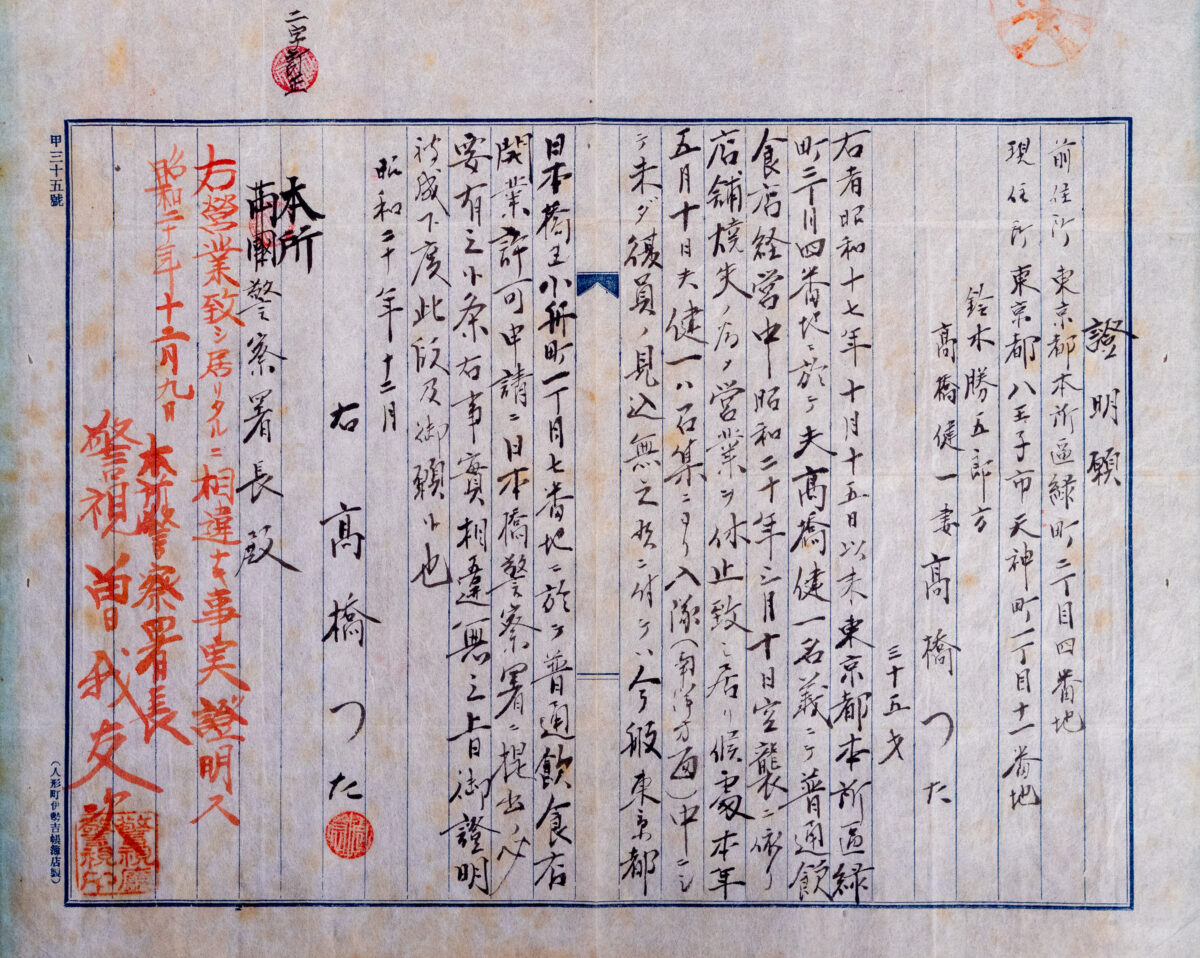 證明願
前住所 東京都本所區緑町二丁目四番地
現住所 東京都八王子市天神町一丁目十一番地
鈴木勝五郎方
髙橋健一妻 髙橋つた
三十五才
右者昭和十七年十月十五日以来東京都本所區緑
町二丁目四番地ニ於テ夫髙橋健一名義ニテ普通飲
食店経営中昭和二十年三月十日空襲ニ依リ
店舗焼失ノ為メ営業ヲ休止致シ居リ候處本年
五月十日夫健一ハ召集ニヨリ入隊(南洋方面)中ニシ
テ未ダ復員ノ見込無之候ニ付テハ今般東京都
日本橋區小舟町一丁目七番地ニ於テ普通飲食店
開業許可申請ニ日本橋警察署ニ提出ノ必
要有之候条右事實相違無之上日御證明
被成下度此段及御願候也
昭和二十年十二月
右 髙橋つた
本所
両國警察署長殿
右營業致シ居リタルニ相違ナキ事実證明ス
昭和二十年十二月九日
本所警察署長
警視 曽我友次
警視廳
二字訂正
甲三十五號
(人形町伊勢吉帳簿店製)